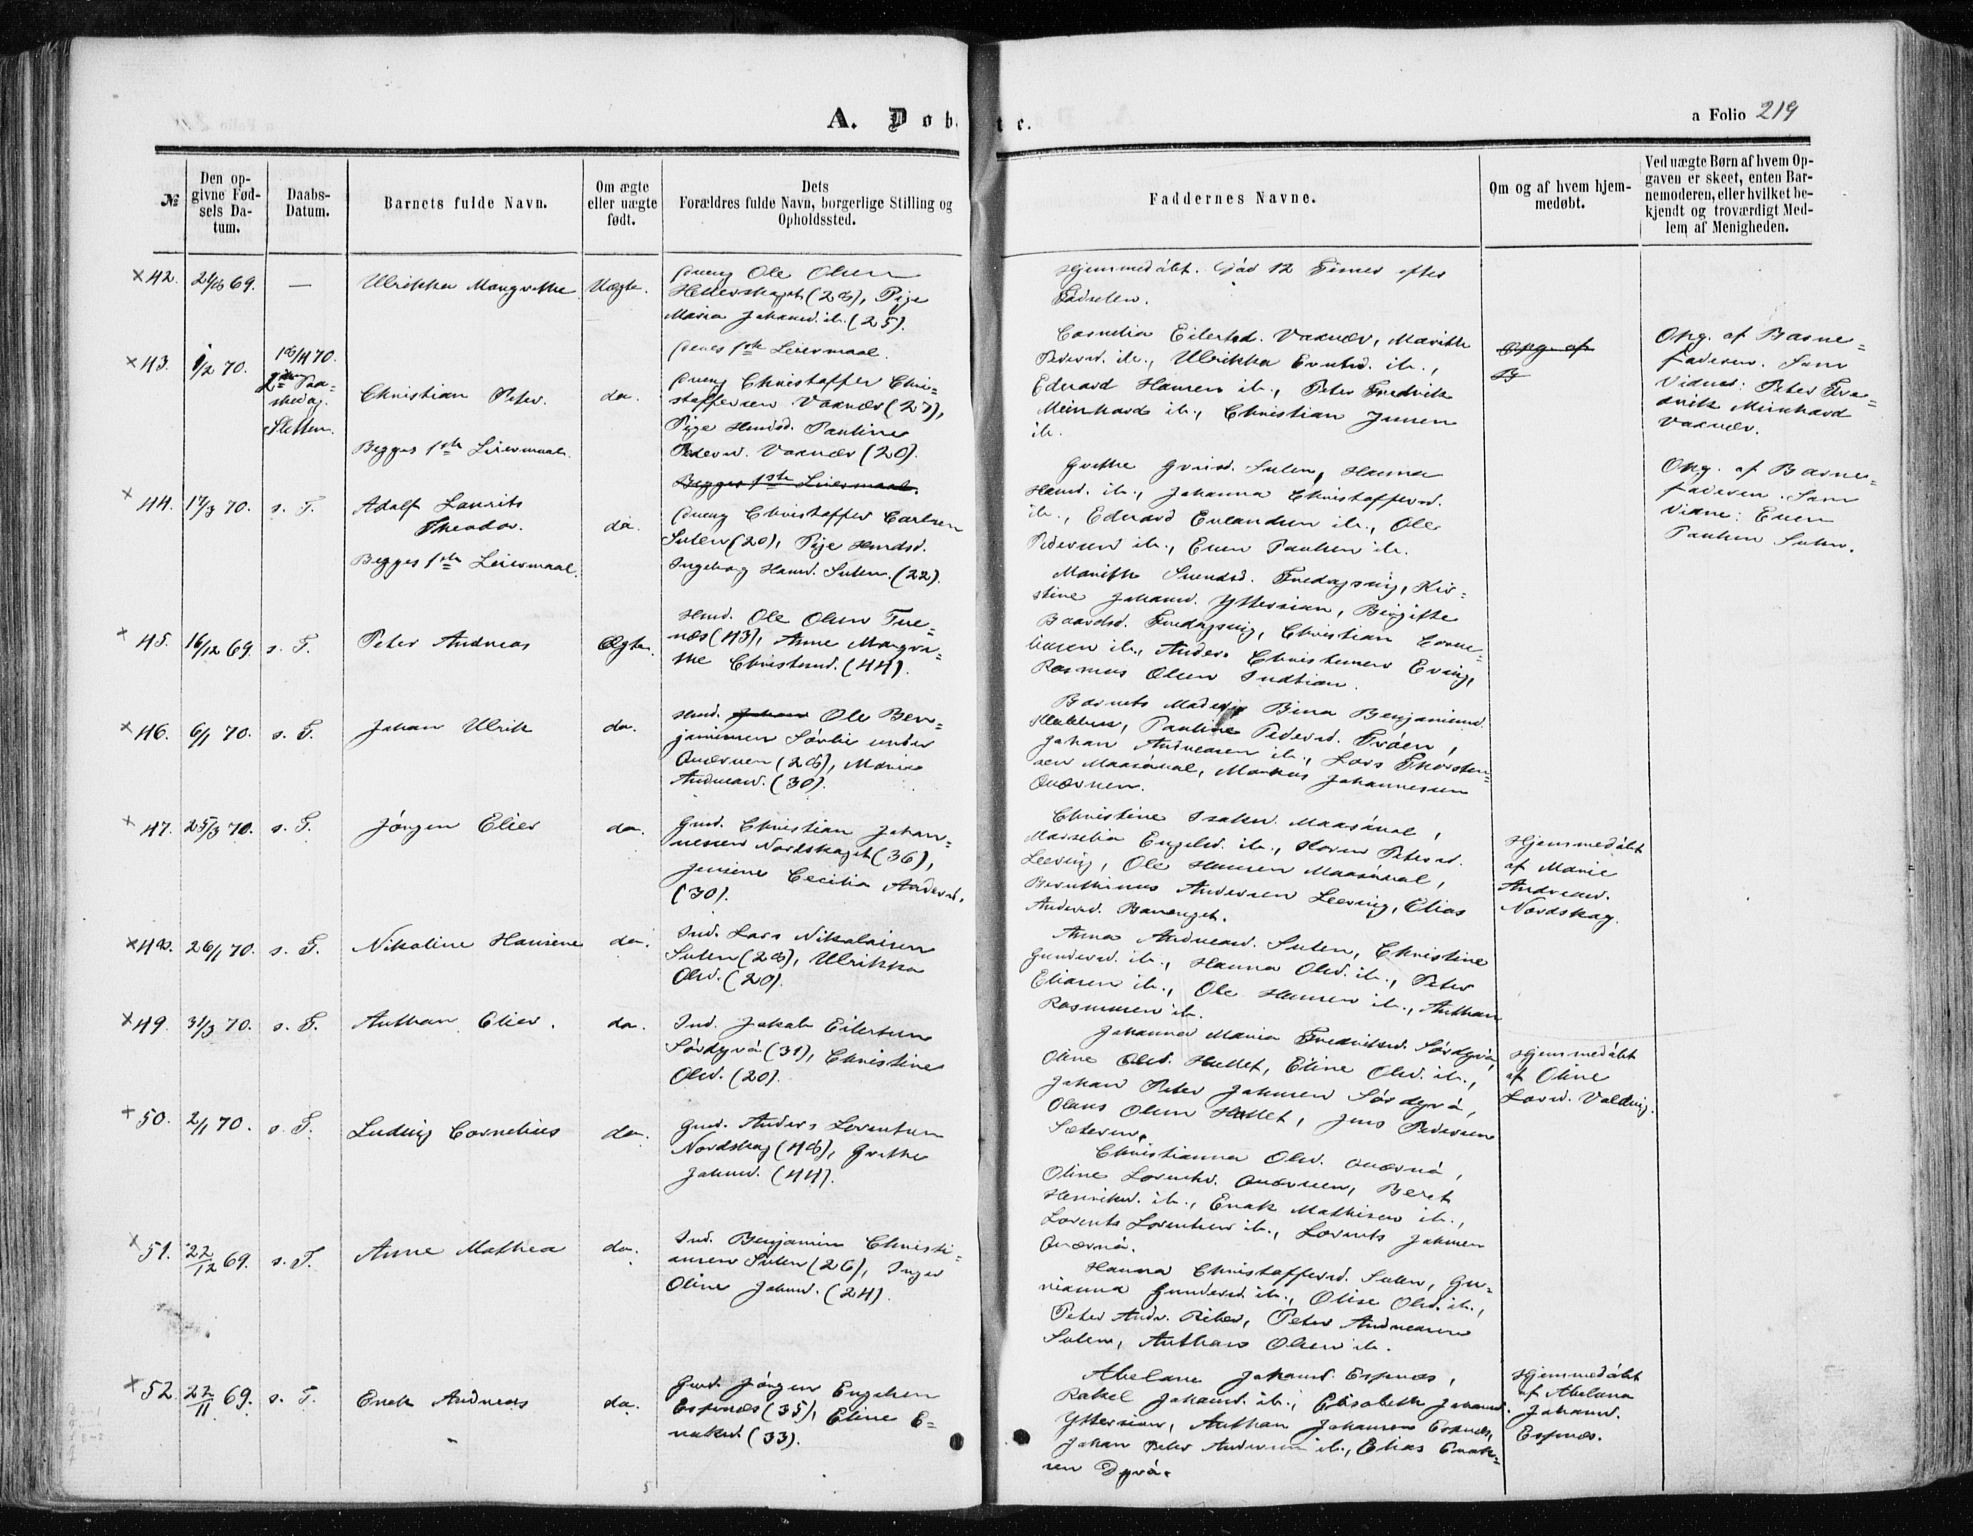 A. Døbte.
a Folio 219
№
Den op-
givne Fød-
sels Da-
tum.
Daabs-
Datum.
Barnets fulde Navn.
Om ægte
eller uægte
født.
Dets
Forældres fulde Navn, borgerlige Stilling og
Opholdssted.
Faddernes Navne.
Om og af hvem hjem-
medøbt.
Ved uægte Børn af hvem Op-
gaven er skeet, enten Bar-
nemoderen, eller hvilket be-
kjendt og troværdigt Med-
lem af Menigheden.
×42.
69.
—
Ulrikka Margrethe
Uægte.
Ungk. Ole Olsen
(28), Pige
Maria Johansd. ib. (25).
Hjemmedøbt. Død 12 Timer efter
Fødselen.
×43.
1/2 70.
18/4 70.
2den Paa-
skedag.
Sletten.
Christian Peter.
do.
Begges 1ste Leiermaal.
Deres 1ste Leiermaal.
Ungk. Christoffer Chri-
stoffersen Vaxvær (27),
Pige Pauline
Pedersd. Vaxvær (20).
Begges 1ste Leiermaal.
Cornelia Eilertsd. Vaxvær, Marith
Pedersd. ib., Ulrikka ib.,
Edvard Hansen ib., Peter Fredrik
Meinhard ib., Christian Jensen
ib.
Opg. af
B
Opg. af Barne-
faderen. Som
Vidne: Peter Fre-
drik Meinhard
Vaxvær.
×44.
17/3 70.
s. S.
Adolf Laurits
Theodor.
do.
Begges 1ste Leiermaal.
Ungk. Christoffer Carlsen
Sulen (20), Pige
Ingeborg Hansd. Sulen. (22).
Grethe Sulen, Hanna
Hansd. ib., Johanna Christoffersd.
ib., Edvard Erlandsen ib., Ole
Pedersen ib., Even Paulsen ib.
Opg. af Barne-
faderen. Som
Vidne: Even
Paulsen Sulen.
×45.
16/12 69
s. S.
Peter Andreas
Ægte.
Ole Olsen Fue-
næs (43), Anne Margre-
the Christensd. (44).
Marith Svendsd. Fredagsvig, Kir-
stine Johansd. Yttersian, Birgitte
Baardsd. Fredagsvig, Christian Corne-
liusen ib., Anders Christensen Ervig,
Rasmus Olsen Indsian.
×46.
6/1 70.
s. S.
Johan Ulrik
do.
Johan Ole Ben-
jaminsen Sørlie under
Qværnen (28), Maria
Andreasd. (30).
Barnets Moder, Bina Benjaminsd.
Pauline Pedersd. Frøen,
Johan Andreasen ib., Lars Thorsten-
sen Maasøval, Markus Johannesen
Qværnen.
×47.
25/3 70.
s. S.
Jørgen Elier
do.
Gmd. Christian Johan-
nessen Nordskaget (36),
Jensine Cecilia Andersd.
(30).
Christine Isaksd. Maasøval,
Marselia Engelsd. ib., Karen Petersd.
Leervig, Ole Hansen Maasøval,
Beruthinus Andersen Leervig, Elias
Andersd. Borenget.
Hjemmedøbt
af Marie
Andreasd.
Nordskag.
×48.
26/1 70.
s. S.
Nikoline Hansine
do.
Ind. Lars Nikolaisen
Sulen (28), Ulrikka
Olsd. (20).
Anna Andreasd. Sulen, Christine
Gundersd. ib., Hanna Olsd. ib., Peter
Eliasen ib., Ole Hansen ib., Anthon
Rasmussen ib.
×49.
31/3 70.
s. S.
Anthon Elier.
do.
Ind. Jakob Eilertsen
Sørdyrø (31), Christine
Olsd. (20).
Johanna Maria Fredriksd. Sørdyrø,
Oline Olsd. Hallet, Eline Olsd. ib.,
Johan Peter Johnsen Sørdyrø,
Olaus Olsen Hallet, Jens Pedersen
Sæteren.
Hjemmedøbt
af Oline
Larsd. Valdvig.
×50.
2/1 70.
s. S.
Ludvig Cornelius
do.
Gmd. Anders Lorentsen
Nordskag (48), Grethe
Johnsd. (44).
Christianna Olsd. Qværnø,
Oline Lorentsd. Qværnen, Beret
Henriksd. ib., Enok Mathisen ib.,
Lorents Lorentsen ib., Lorents Johnsen
Qværnø.
×51.
22/12 69.
s. S.
Anne Mathea
do.
Ind. Benjamin Christi-
ansen Sulen (26), Inger
Oline Johnsd. (24).
Hanna Christoffersd. Sulen, Gu-
rianna Gundersd. ib., Olise Olsd. ib.,
Peter Andr. Peter Andreasen
Sulen, Anthon Olsen ib.
×52.
22/11 69.
s. S.
Enok Andreas
do.
Gmd. Jørgen Engelsen
Espnæs (35), Eline E-
noksd. (33).
Abelone Johansd. Espnæs,
Rakel Johansd. ib., Elisabeth Johansd.
Yttersian, Anthon Johansen Espnæs,
Johan Peter Andersen ib., Elias Enok-
sen Dyrø.
Hjemmedøbt
af Abelona
Johansd.
Espnæs.